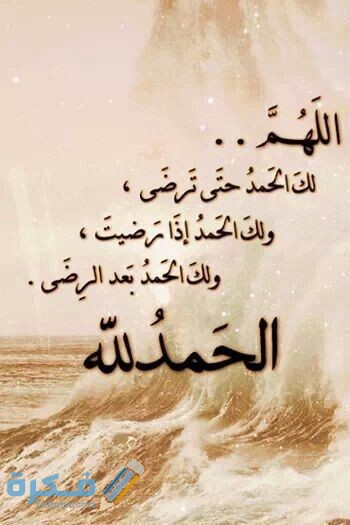 اللَهُمَّ . .
لكَ الحَمدُ حتَى تَرضَى ،
ولكَ الحَمدُ إذَا رَضيتَ ،
ولكَ الحَمدُ بَعد الرِضَى .
الحَمدُ لله
فكرة